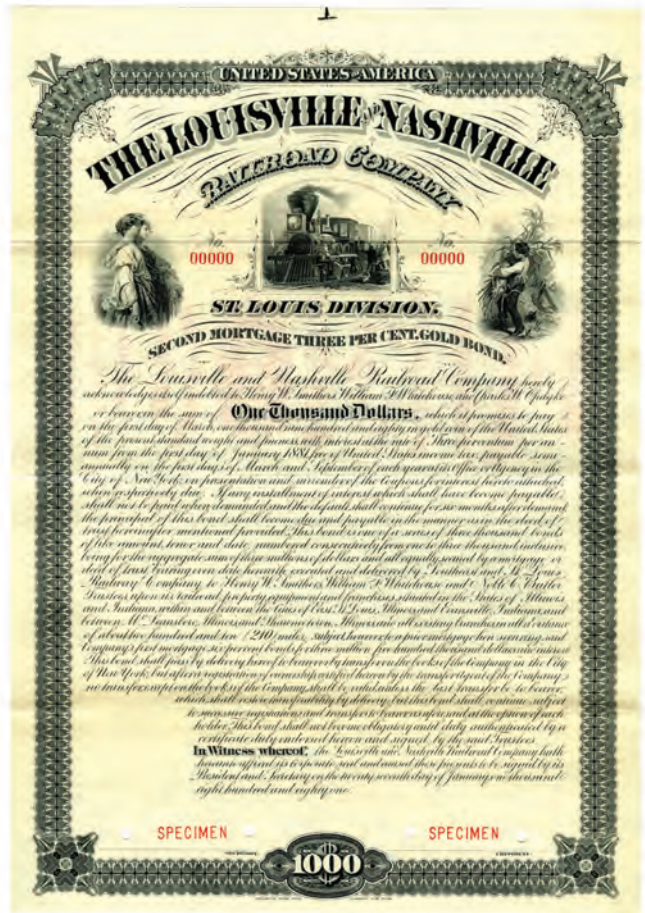 UNITED STATES OF AMERICA
THE LOUISVILLE AND NASHVILLE
RAILROAD COMPANY
No. No.
00000 00000
ST. LOUIS DIVISION.
SECOND MORTGAGE THREE PER CENT. GOLD BOND.
The Louisville and Nashville Railroad Company hereby
acknowledges itself indebted to Henry W. Smithers, William F. Whitehouse and Charles W. Opdyke
or bearer in the sum of One Thousand Dollars, which it promises to pay
on the first day of March, one thousand nine hundred and eighty in gold coin of the United States
of the present standard weight and fineness, with interest at the rate of Three per centum per an-
num from the first day of January 1881, free of United States income tax, payable semi-
annually on the first days of March and September of each year at its Office or Agency in the
City of New York, on presentation and surrender of the Coupons for interest hereto attached,
when respectively due. If any installment of interest which shall have become payable,
shall not be paid when demanded and the default shall continue for six months after demand
the principal of this bond shall become due and payable in the manner as in the deed of
trust hereinafter mentioned provided. This bond is one of a series of three thousand bonds
of like amount, tenor and date, numbered consecutively from one to three thousand, inclusive,
being for the aggregate sum of three millions of dollars and all equally secured by a mortgage or
deed of trust bearing even date herewith, executed and delivered by Southeast and St. Louis
Railway Company to Henry W. Smithers, William F. Whitehouse and Noble C. Butler
Trustees upon its railroad, property, equipment and franchises situated in the States of Illinois
and Indiana, within and between the Cities of East St. Louis, Illinois and Evansville, Indiana, and
between Mc. Leansboro, Illinois and Shawneetown, Illinois and all existing branches in all a distance
of about two hundred and ten (210) miles, subject however to a prior mortgage then securing said
Company's first mortgage six percent bonds for three million five hundred thousand dollars and interest
This bond shall pass by delivery hereof to bearer or by transfer on the books of the Company in the City
of New York, but after a registration of ownership certified hereon by the transfer agent of the Company,
no transfer except on the books of the Company shall be valid, unless the last transfer be to bearer,
which shall restore transferability by delivery, but this bond shall continue subject
to successive registrations and transfers to bearer as aforesaid at the option of each
holder. This bond shall not become obligatory until duly authenticated by a
certificate duly endorsed hereon and signed by the said Trustees.
In Witness whereof, the Louisville and Nashville Railroad Company hath
hereunto affixed its corporate seal and caused these presents to be signed by its
President and Secretary on the twenty seventh day of January, one thousand
eight hundred and eighty one.
SPECIMEN SPECIMEN
SECRETARY. PRESIDENT.
$1000